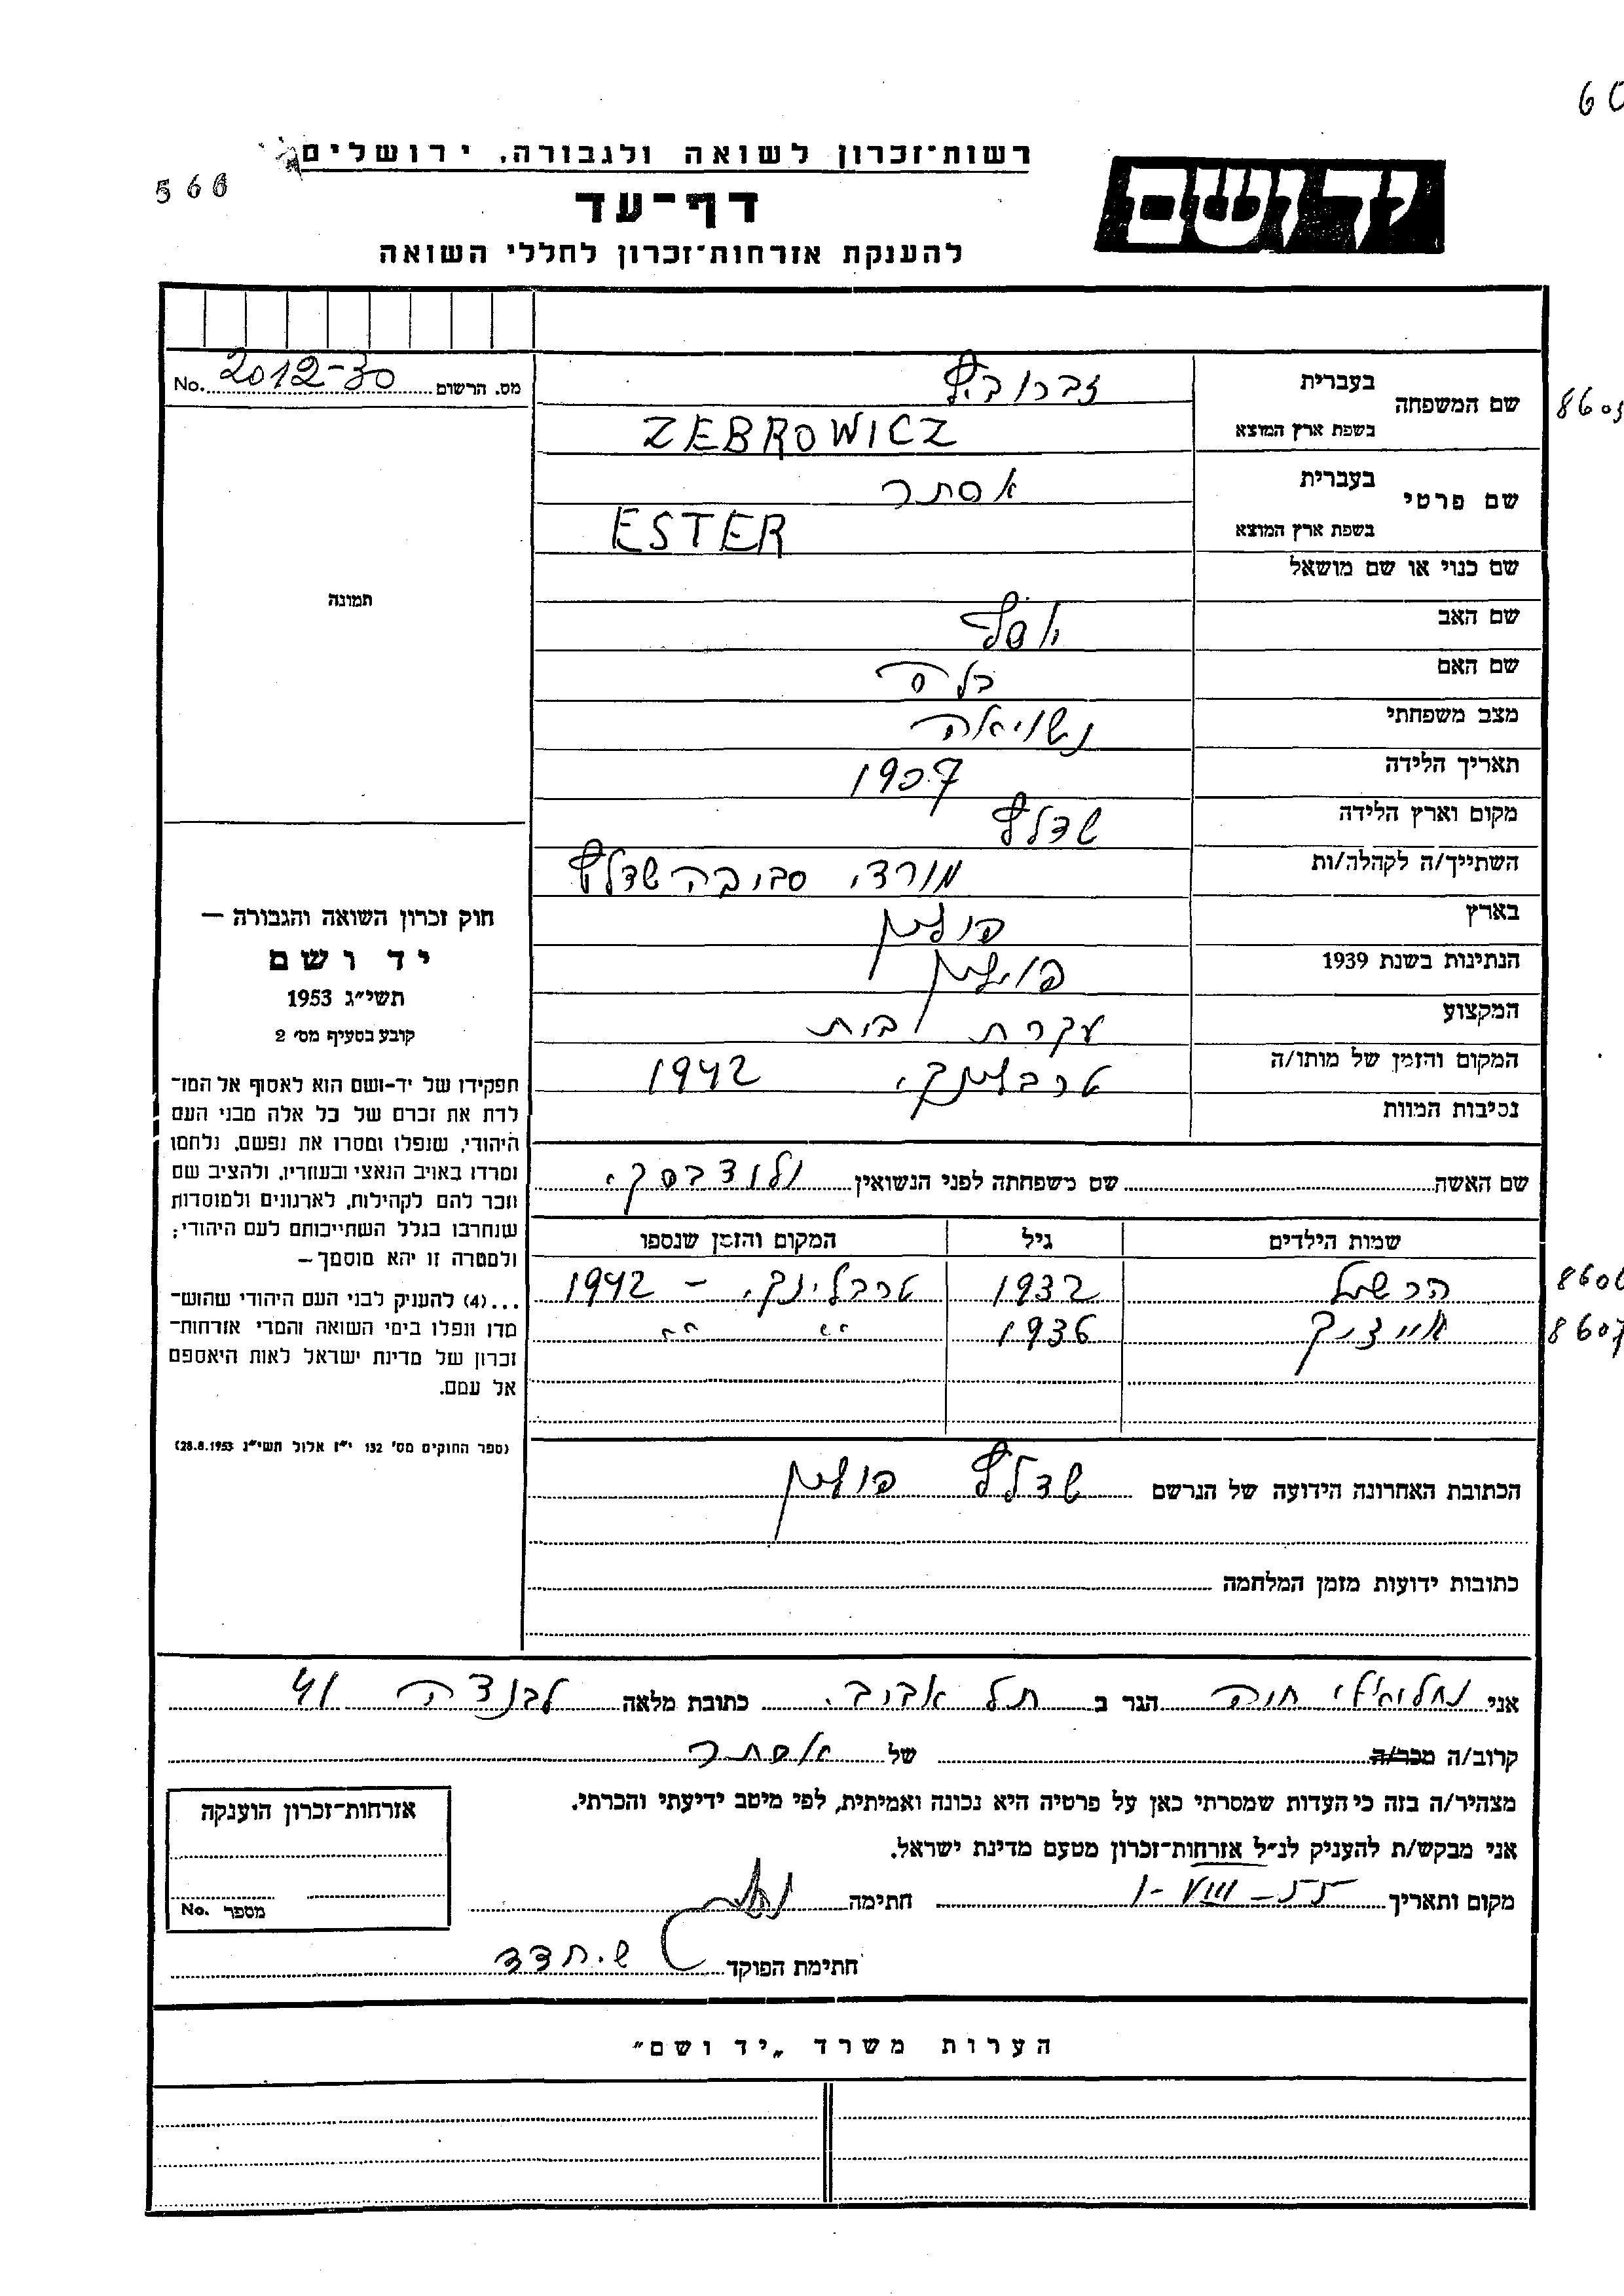 60
רשות־זכרון לשואה ולגבורה, ירושלים
566
דף־עד
יד ושם
להענקת אזרחות־זכרון לחללי השואה
מס. הרשום 2012-30 No.
שם המשפחה בעברית זברוביץ
8605
בשפת ארץ המוצא ZEBROWICZ
שם פרטי בעברית אסתר
בשפת ארץ המוצא ESTER
שם כנוי או שם מושאל
תמונה
שם האב יוסף
שם האם
מצב משפחתי נשואה
תאריך הלידה 1907
מקום וארץ הלידה שדלץ
השתייך/ה לקהלה/ות מורדי סביבה שדלץ
בארץ פולין
הנתינות בשנת 1939 פולין
המקצוע עקרת בית
המקום והזמן של מותו/ה טרבלינקי 1942
נסיבות המוות
חוק זכרון השואה והגבורה —
יד ושם
תשי״ג 1953
קובע בסעיף מס׳ 2
תפקידו של יד-ושם הוא לאסוף אל המו־
לדת את זכרם של כל אלה מבני העם
היהודי, שנפלו ומסרו את נפשם, נלחמו
ומרדו באויב הנאצי ובעוזריו, ולהציב שם
וזכר להם לקהילות, לארגונים ולמוסדות
שנחרבו בגלל השתייכותם לעם היהודי;
ולמטרה זו יהא מוסמך —
...(4) להעניק לבני העם היהודי שהוש־
מדו ונפלו בימי השואה והמרי אזרחות־
זכרון של מדינת ישראל לאות היאספם
אל עמם.
(ספר החוקים מס׳ 132 י״ז אלול תשי״ג 28.8.1953)
שם האשה שם משפחתה לפני הנשואין
שמות הילדים גיל המקום והזמן שנספו
הרשל 1932 טרבלינקי - 1942
8606
אייזיק 1936 " "
8607
הכתובת האחרונה הידועה של הנרשם שדלץ פולין
כתובות ידועות מזמן המלחמה
אני נחליאלי חוה הגר ב תל אביב. כתובת מלאה לבונדה 41
קרוב/ה מכר/ה של אסתר
מצהיר/ה בזה כי העדות שמסרתי כאן על פרטיה היא נכונה ואמיתית, לפי מיטב ידיעתי והכרתי.
אני מבקש/ת להעניק לנ״ל אזרחות־זכרון מטעם מדינת ישראל.
מקום ותאריך 1-VIII-55 חתימה
חתימת הפוקד ש. חדד
אזרחות־זכרון הוענקה
מספר No.
הערות משרד „יד ושם״